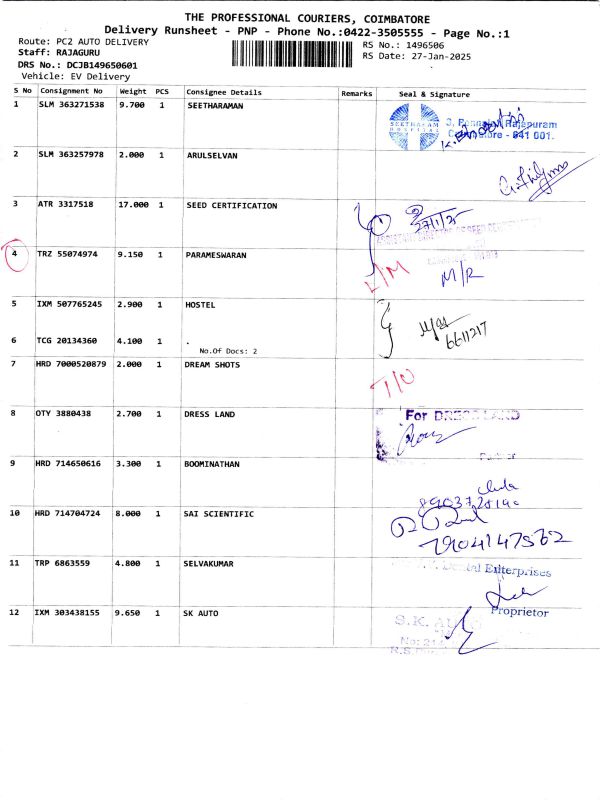 THE PROFESSIONAL COURIERS, COIMBATORE
Delivery Runsheet - PNP - Phone No.:0422-3505555 - Page No.:1
Route: PC2 AUTO DELIVERY
RS No.: 1496506
Staff: RAJAGURU
RS Date: 27-Jan-2025
DRS No.: DCJB149650601
Vehicle: EV Delivery
S No Consignment No Weight PCS Consignee Details Remarks Seal & Signature
1 SLM 363271538 9.700 1 SEETHARAMAN
SEETHARAM
HOSPITAL
641 001.
2 SLM 363257978 2.000 1 ARULSELVAN
3 ATR 3317518 17.000 1 SEED CERTIFICATION
27/1/25
4 TRZ 55074974 9.150 1 PARAMESWARAN
L/M
M/R
5 IXM 507765245 2.900 1 HOSTEL
6 TCG 20134360 4.100 1 .
No.Of Docs: 2
6611217
7 HRD 7000520879 2.000 1 DREAM SHOTS
8 OTY 3880438 2.700 1 DRESS LAND
For DRESS LAND
9 HRD 714650616 3.300 1 BOOMINATHAN
10 HRD 714704724 8.000 1 SAI SCIENTIFIC
7904147562
11 TRP 6863559 4.800 1 SELVAKUMAR
Dental Enterprises
Proprietor
12 IXM 303438155 9.650 1 SK AUTO
S.K. AUTO